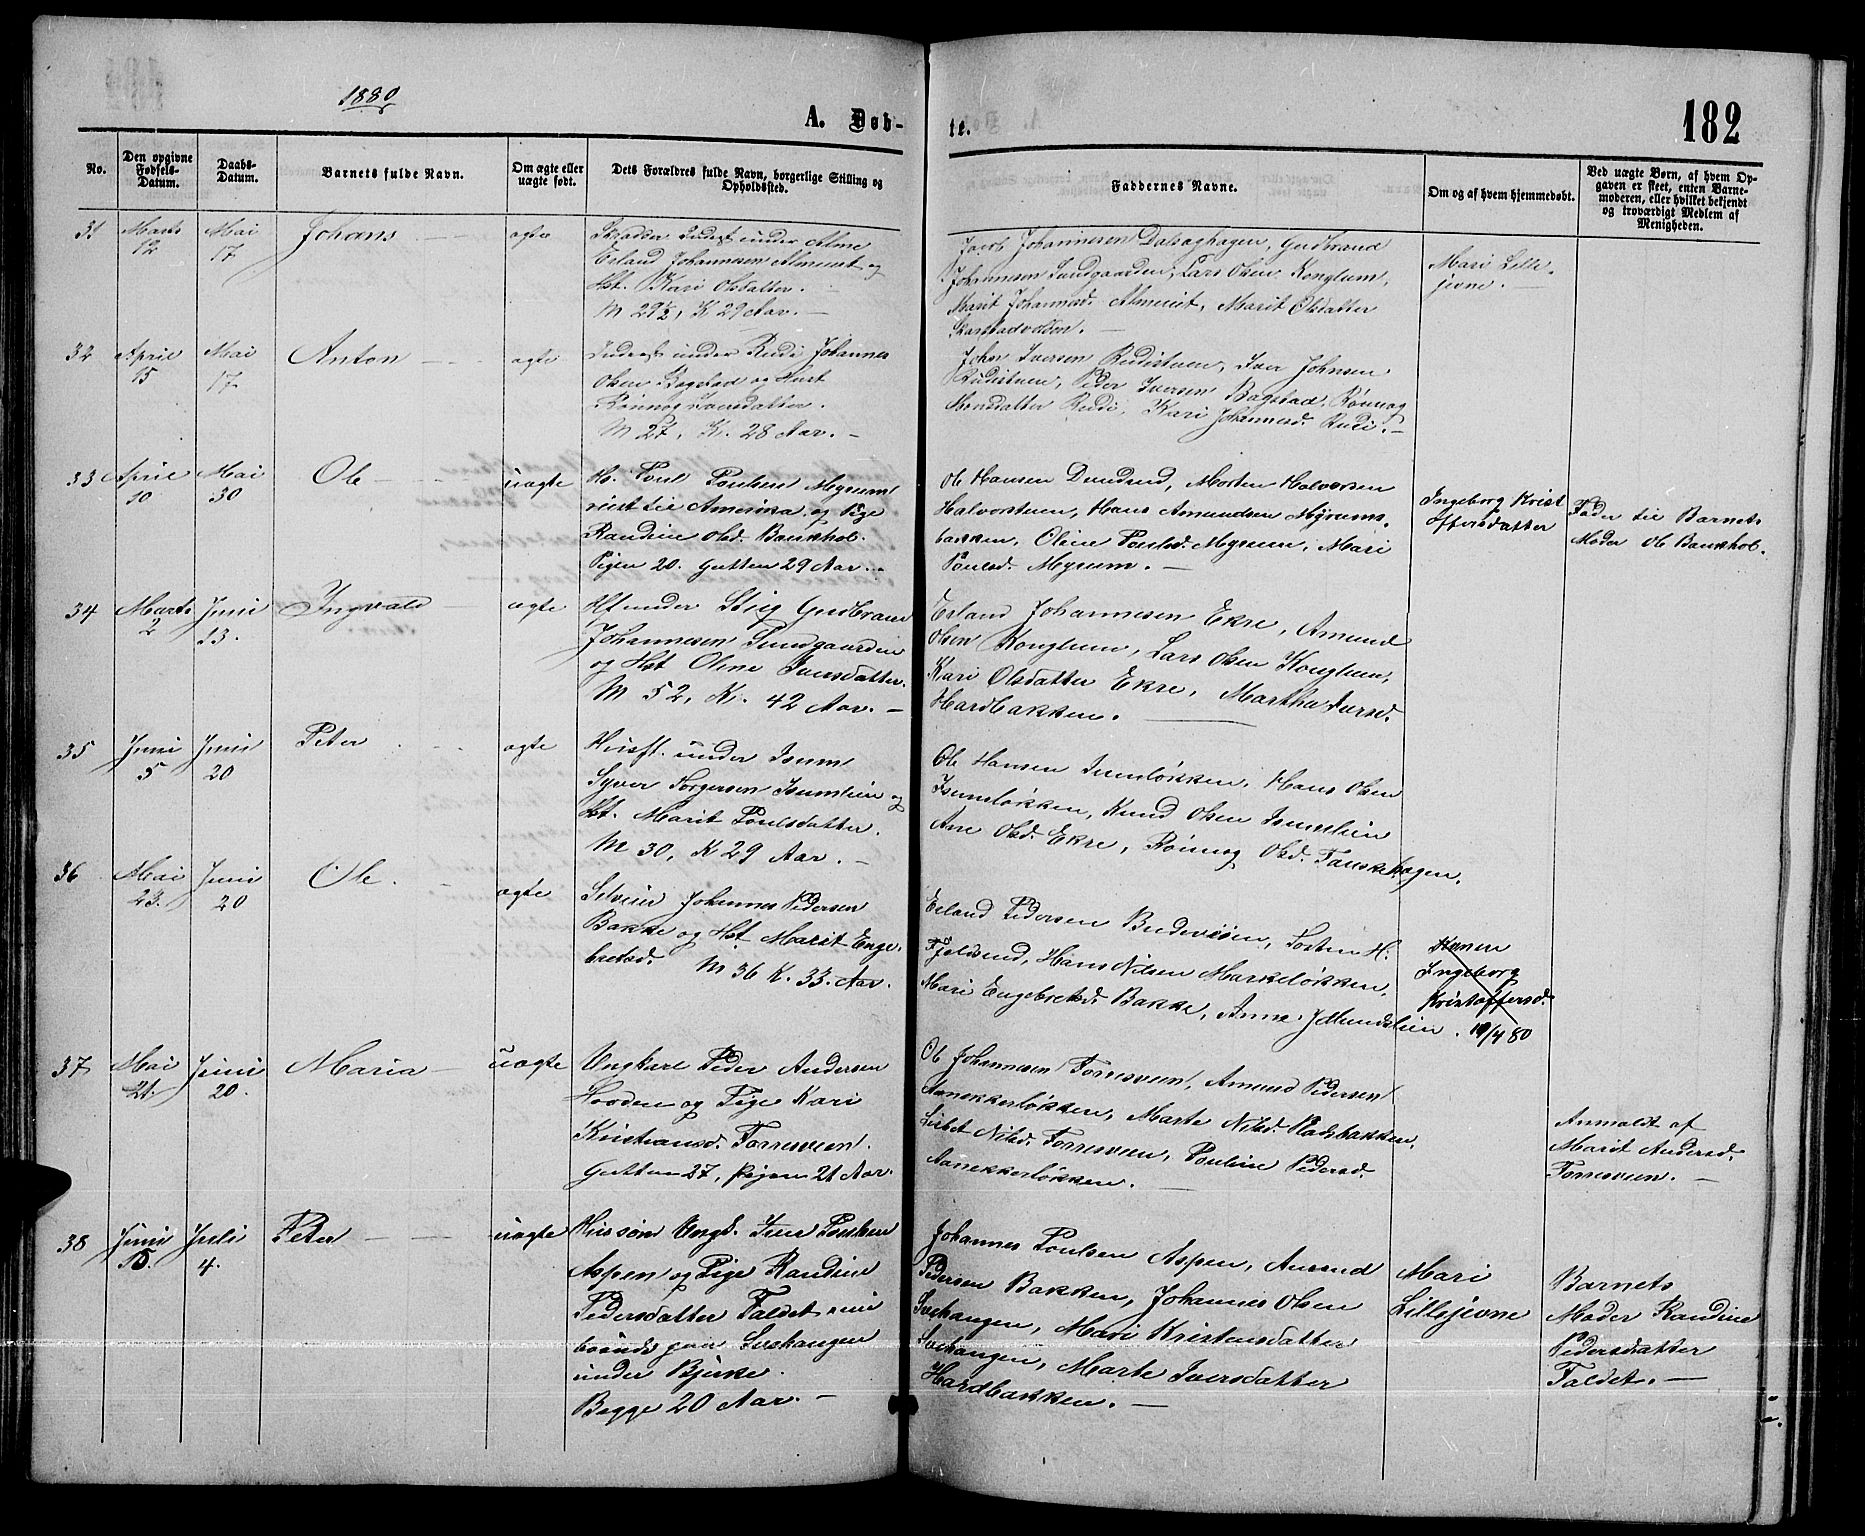 1880
A. Døb-
te.
182
No.
Den opgivne Fødsels-Datum.
Daabs-Datum.
Barnets fulde Navn.
Om ægte eller uægte født.
Dets Forældres fulde Navn, borgerlige Stilling og Opholdssted.
Faddernes Navne.
Om og af hvem hjemmedøbt.
Ved uægte Børn, af hvem Opgaven er skeet, enten Barnemoderen, eller hvilket bekjendt og troværdigt Medlem af Menigheden.
31 Marts 12 Mai 17 Johans ægte
under Alme
Erland Johannesen Almeiet og
Hst. Kari Olsdatter.
M 29½, K 29 Aar. —
Jacob Johannesen Dalsaghagen, Gudbrand
Johannesen Sundgaarden, Lars Olsen Konglum,
Marit Johannesd. Almeiet, Marit Olsdatter
Mari Lille-
jevne. —
32 April 15 Mai 17 Anton ægte
Inderst under Rudi Johannes
Olsen Bagstad og Hust
Rønnog Iversdatter.
M 27, K. 28 Aar. —
John Iversen Rudistuen, Iver Johnsen
Rudistuen, Peder Iversen Bagstad, Rønnog
Monsdatter Rudi, Kari Johannesd. Rudi. —
33 April 10 Mai 30 Ole uægte
Poul Poulsen Myrum
reist til Amerika og Pige
Randine Olsd. Baukhol.
Pigen 20. Gutten 29 Aar. —
Ole Hansen Morten Halvorsen
Halvorstuen, Hans Amundsen Myrums-
bakken, Oline Poulsd. Myrum, Mari
Poulsd. Myrum. —
Ingeborg Krist
offersdatter
Fader til Barnets
Moder Ole Baukhol.
34 Marts 2 Juni 13. Ingvald ægte
Hf under Stig Gudbrand
Johannesen Sundgaarden
og Hst Oline Iversdatter.
M 52, K. 42 Aar. —
Erland Johannesen Ekre, Amund
Olsen Konglum, Lars Olsen Konglum,
Kari Olsdatter Ekre, Martha Iversd.
Hardbakken. —
35 Juni 5 Juni 20 Peter ægte
Husf. under Isum
Syver Torgersen Isumlien og
Hst. Marit Poulsdatter.
M 30, K 29 Aar. —
Ole Hansen Isumløkken, Hans Olsen
Isumløkken, Knud Olsen Isumlien
Ane Olsd. Ekre, Rønnog Olsd. Fauskehagen.
36 Mai 23. Juni 20 Ole. ægte
Selveier Johannes Pedersen
Bakke og Hst Marit Enge-
bretsd. M 36 K. 33. Aar.
Erland Pedersen Torsten H.
Hans Nilsen Markeløkken,
Mari Engebretsd. Bakke, Anne
Konen
Ingeborg
Kristoffersd.
19/4 80
37 Mai 21. Juni 20. Maria uægte
Ungkarl Peder Andersen
Hovden og Pige Kari
Kristiansd. Forrestuen.
Gutten 27, Pigen 21 Aar.
Ole Johannesen Forrestuen, Amund Pedersen
Aanekkerløkken, Marte Nilsd. Pladsbakken,
Lisbet Nilsd. Forrestuen, Pauline Pedersd.
Aanekkerløkken. —
Anmeldt af
Marit Andersd.
Forrestuen. —
38 Juni 15. Juli 4. Peter uægte
Hussøn Ungk. Iver Poulsen
Aspen og Pige Randine
Pedersdatter Faldet nu
boende paa Svehaugen
under Bjerke.
Begge 20 Aar. —
Johannes Poulsen Aspen, Amund
Pedersen Bakken, Johannes Olsen
Svehaugen, Mari Kristensdatter
Svehaugen, Marte Iversdatter
Hardbakken. —
Mari
Lillejevne
Barnets
Moder Randine
Pedersdatter
Faldet. —